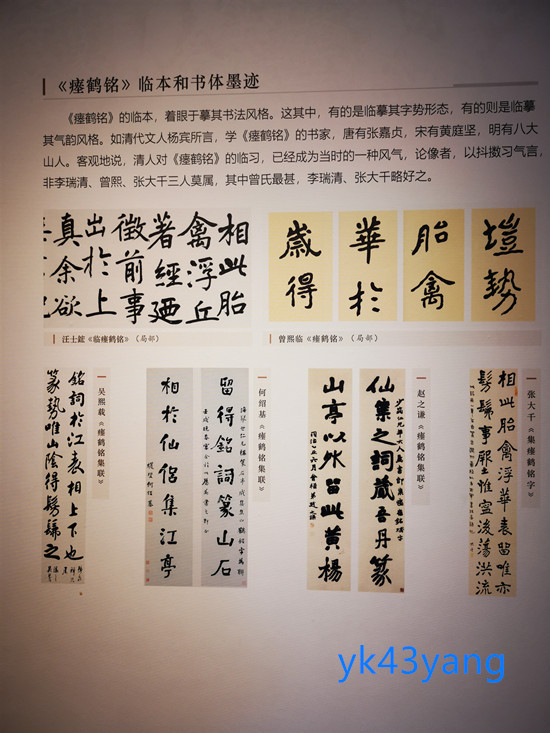 《瘗鹤铭》临本和书体墨迹
《瘗鹤铭》的临本，着眼于摹其书法风格。这其中，有的是临摹其字势形态，有的则是临摹
其气韵风格。如清代文人杨宾所言，学《瘗鹤铭》的书家，唐有张嘉贞，宋有黄庭坚，明有八大
山人。客观地说，清人对《瘗鹤铭》的临习，已经成为当时的一种风气，论像者，以抖擞习气言，
非李瑞清、曾熙、张大千三人莫属，其中曾氏最甚，李瑞清、张大千略好之。
相此胎
禽浮丘
著經廼
徵前事
出於上
真余欲
塏勢
胎禽
華於
歲得
汪士鋐《临瘗鹤铭》（局部）
曾熙临《瘗鹤铭》（局部）
张大千《集瘗鹤铭字》
相此胎禽浮華表留唯亦
髣髴事厎土惟寍後蕩洪流
赵之谦《瘗鹤铭集联》
仙集之詞藏吾丹篆
山亭以外留此黃楊
何绍基《瘗鹤铭集联》
留得銘詞篆山石
相於仙侶集江亭
吴熙载《瘗鹤铭集联》
銘詞於江表相上下也
篆勢唯山陰得髣髴之
yk43yang